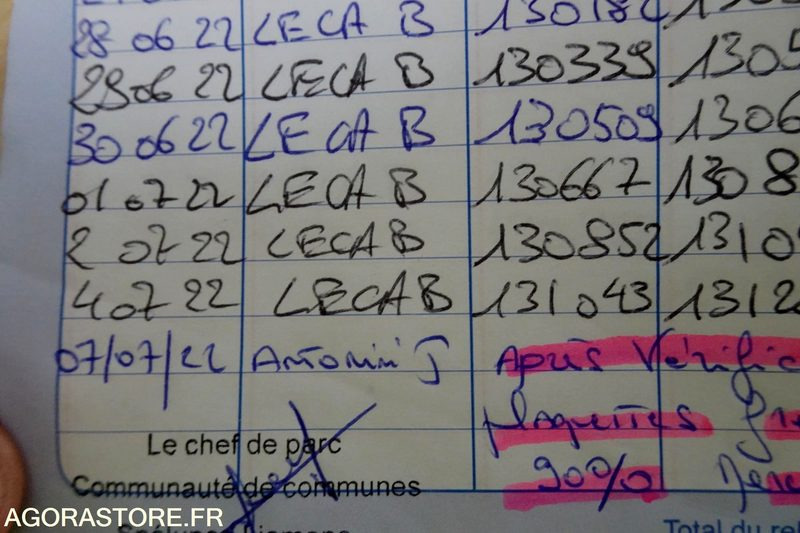 28 06 22 LECA B 130182
29 06 22 LECA B 130339 1305
30 06 22 LECA B 130509 1306
01 07 22 LECA B 130667 1308
2 07 22 LECA B 130852 1310
4 07 22 LECA B 131043 1312
07/07/22 Antonini J Après Vérific
Plaquettes
Le chef de parc
90%
Communauté de communes
AGORASTORE.FR
Total du rel